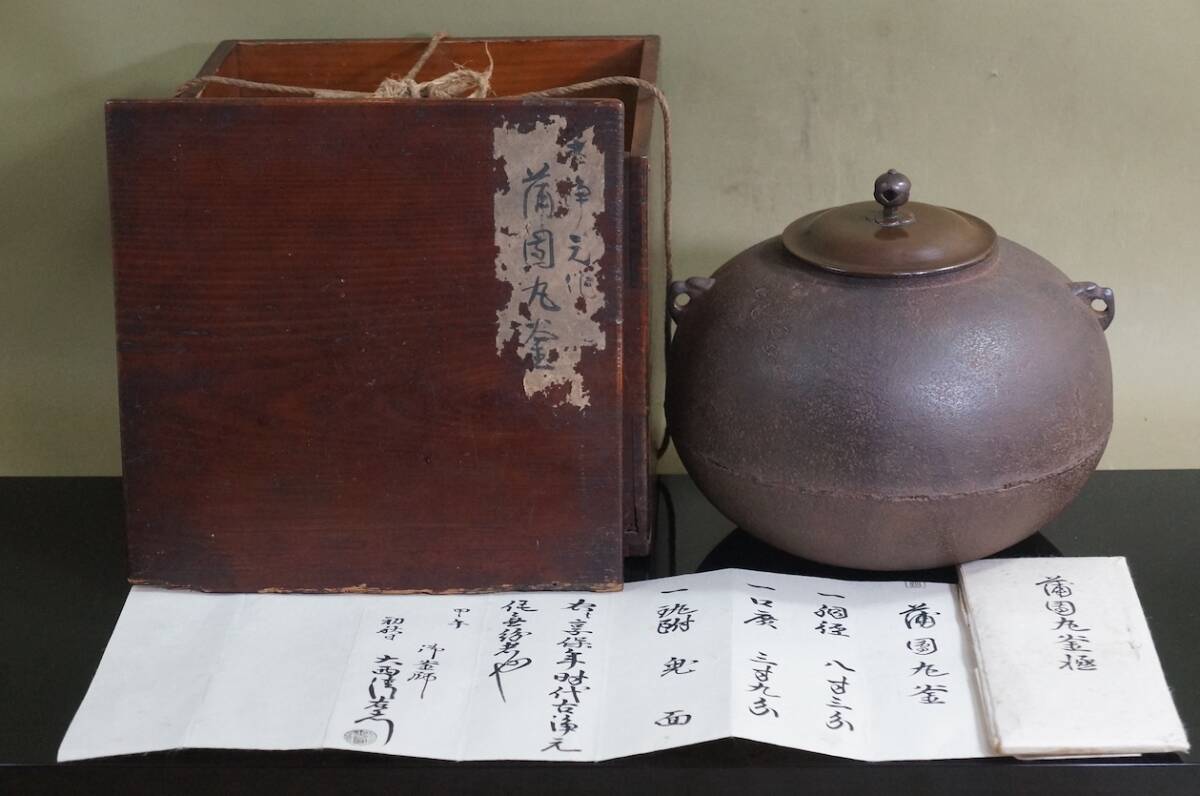 古浄元作
蒲団丸釜
蒲団丸釜極
蒲団丸釜
一胴径 八寸三分
一口広 三寸九分
一鐶附 鬼面
右ハ享保年時代古浄元
作無紛者也
甲午
初秋日
御釜師
大西清右衛門